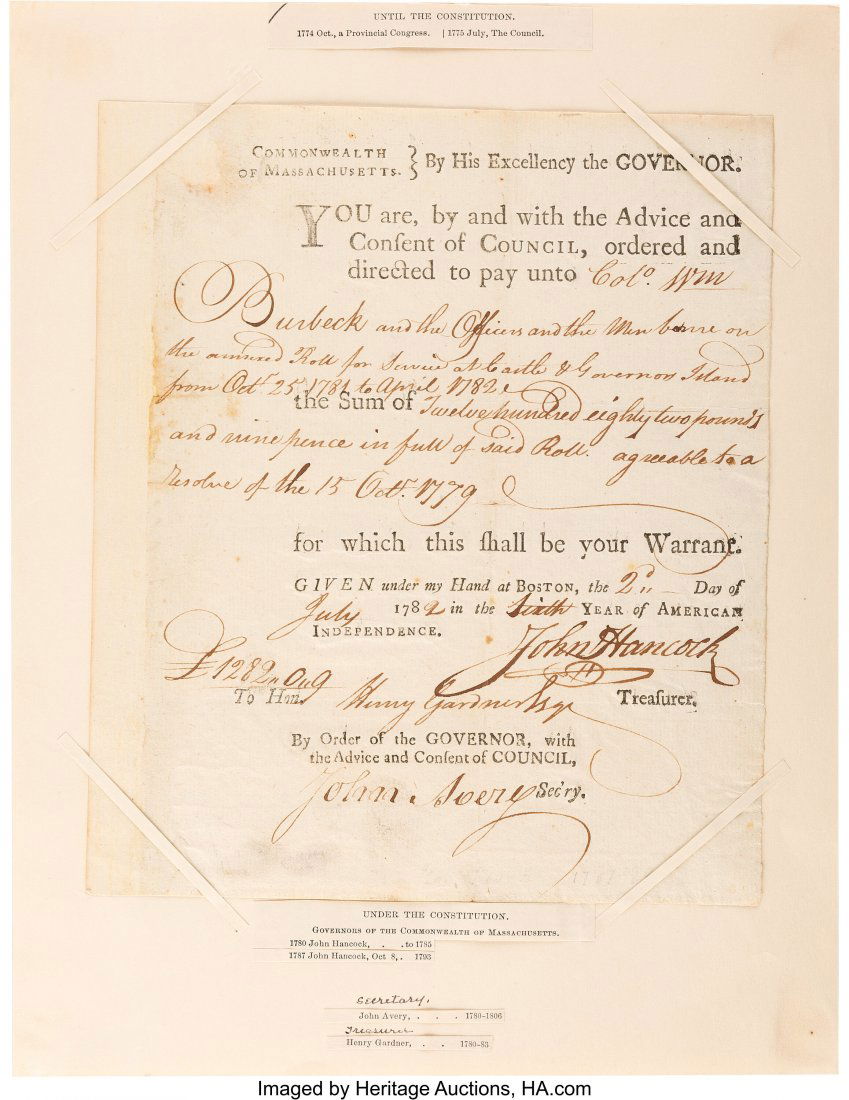 UNTIL THE CONSTITUTION.
1774 Oct., a Provincial Congress. | 1775 July, The Council.
COMMONWEALTH
OF MASSACHUSETTS. } By His Excellency the GOVERNOR.
YOU are, by and with the Advice and
Conſent of COUNCIL, ordered and
directed to pay unto Colo. Wm
Burbeck and the Officers and the Men borne on
the annexed Roll for Service at Castle & Governors Island
from Octr 25 1781 to April 1782
the Sum of Twelve hundred eighty two pounds
and nine pence in full of said Roll. agreeable to a
resolve of the 15 Octr. 1779
for which this ſhall be your Warrant.
GIVEN under my Hand at BOSTON, the 2d Day of
July 1782 in the Sixth YEAR of AMERICAN
INDEPENDENCE.
John Hancock
£1282 „ 0 „ 9
To Hon. Henry Gardner Esqr Treaſurer.
By Order of the GOVERNOR, with
the Advice and Conſent of COUNCIL,
John Avery Sec'ry.
UNDER THE CONSTITUTION.
GOVERNORS OF THE COMMONWEALTH OF MASSACHUSETTS.
1780 John Hancock, . . to 1785
1787 John Hancock, Oct 8, . 1793
Secretary.
John Avery, . . . 1780-1806
Treasurer
Henry Gardner, . . 1780-83
Imaged by Heritage Auctions, HA.com